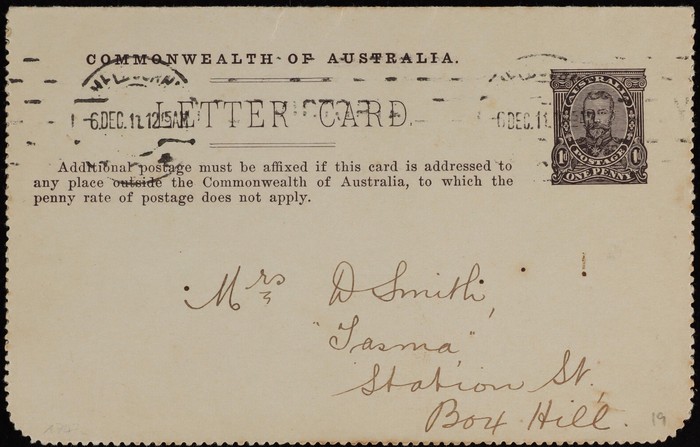 COMMONWEALTH OF AUSTRALIA.
MELBOURNE
6 DEC. 11. 12.15AM
LETTER CARD.
6 DEC. 11.
AUSTRALIA
POSTAGE
1 1
ONE PENNY
Additional postage must be affixed if this card is addressed to
any place outside the Commonwealth of Australia, to which the
penny rate of postage does not apply.
Mrs D Smith,
"Tasma",
Station St,
Box Hill.
19